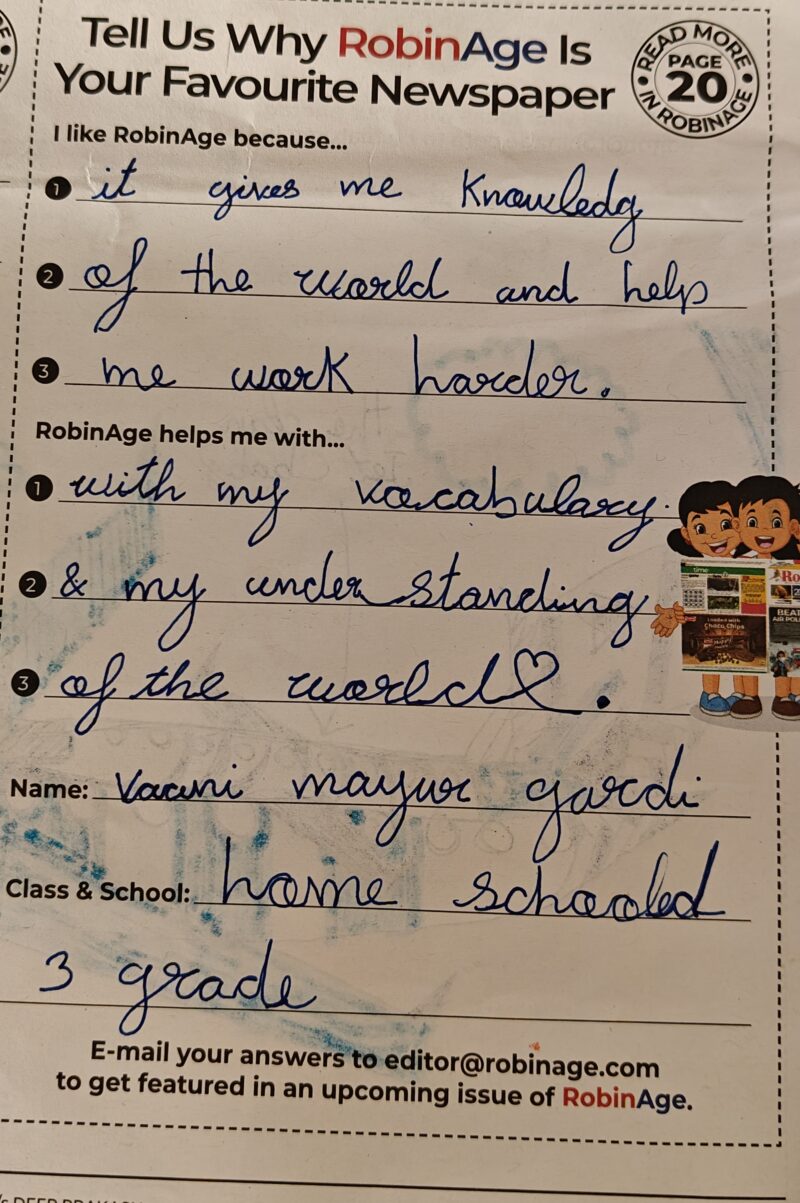 Tell Us Why RobinAge Is
Your Favourite Newspaper
READ MORE
PAGE
20
IN ROBINAGE
I like RobinAge because...
1 it gives me Knowledg
2 of the world and help
3 me work harder.
RobinAge helps me with...
1 with my vocabulary.
2 & my understanding
3 of the world♡.
Name: Vaani mayur gardi
Class & School: home schooled
3 grade
E-mail your answers to editor@robinage.com
to get featured in an upcoming issue of RobinAge.